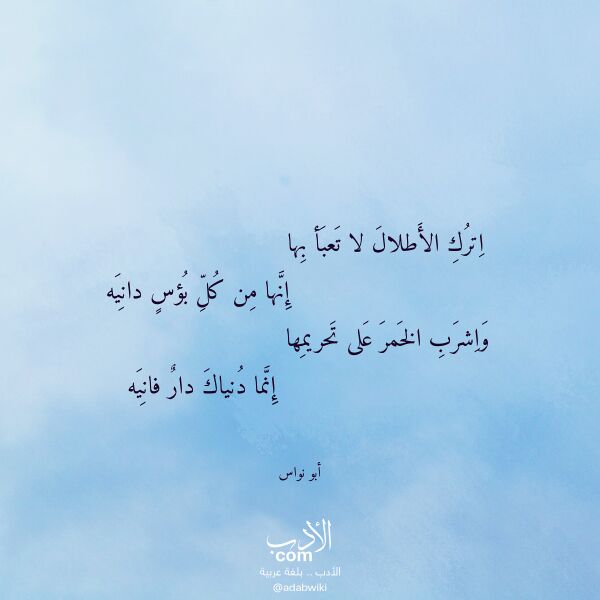 اِترُكِ الأَطلالَ لا تَعبَأ بِها
إِنَّها مِن كُلِّ بُؤسٍ دانِيَه
وَاِشرَبِ الخَمرَ عَلى تَحريمِها
إِنَّما دُنياكَ دارٌ فانِيَه
أبو نواس
الأدب
com
الأدب .. بلغة عربية
@adabwiki